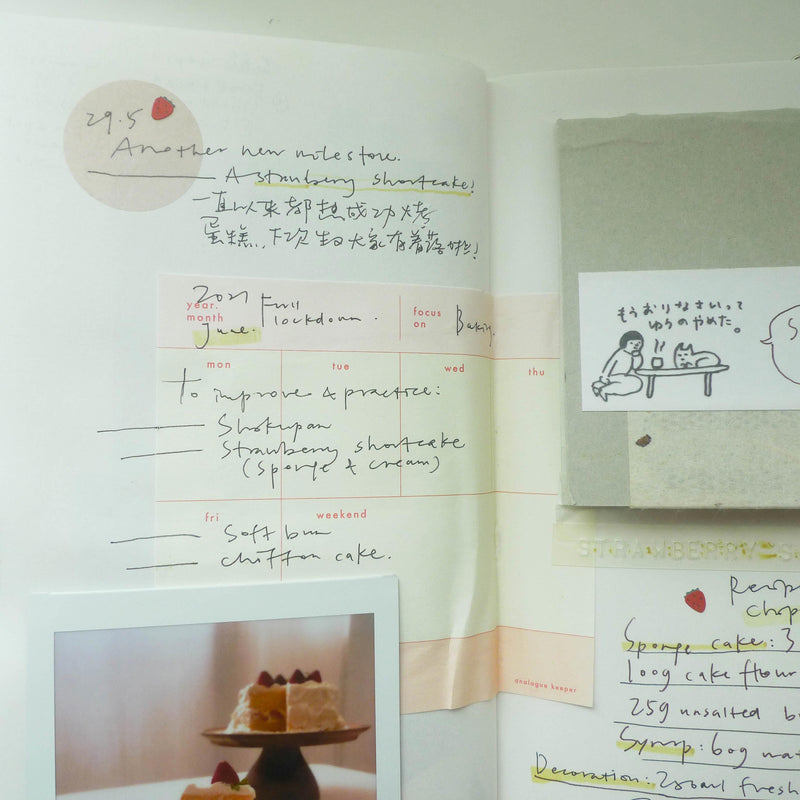 29.5
Another new milestone.
A strawberry shortcake!
一直以來都想成功烤
蛋糕,下次生日大家有着落啦!
2021 Full
year. lockdown.
month
June.
focus
on Baking.
mon tue wed thu
To improve & practice:
Shokupan
Strawberry shortcake
(Sponge & cream)
fri weekend
Soft bun
chiffon cake.
analogue keeper
もうおりなさいって
ゆうのやめた。
S
STRAWBERRY S
Sponge cake: 3
100g cake flour
25g unsalted
Syrup: 60g
Decoration: 250ml fresh